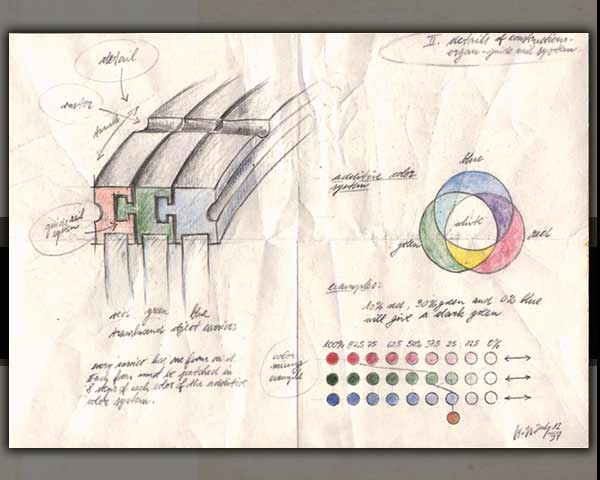 II. details of constructions-
organ-guide and system
detail
additive color
system
blue
white
green
red
guide rail
system
red green blue
translucent object carriers
examples:
10% red, 30% green and 0% blue
will give a dark green.
100% 87.5 75 62.5 50% 37.5 25 12.5 0%
color
mixing
example
every carrier has one form on it
Each form must be patched in
8 steps of each color of the additive
color system.